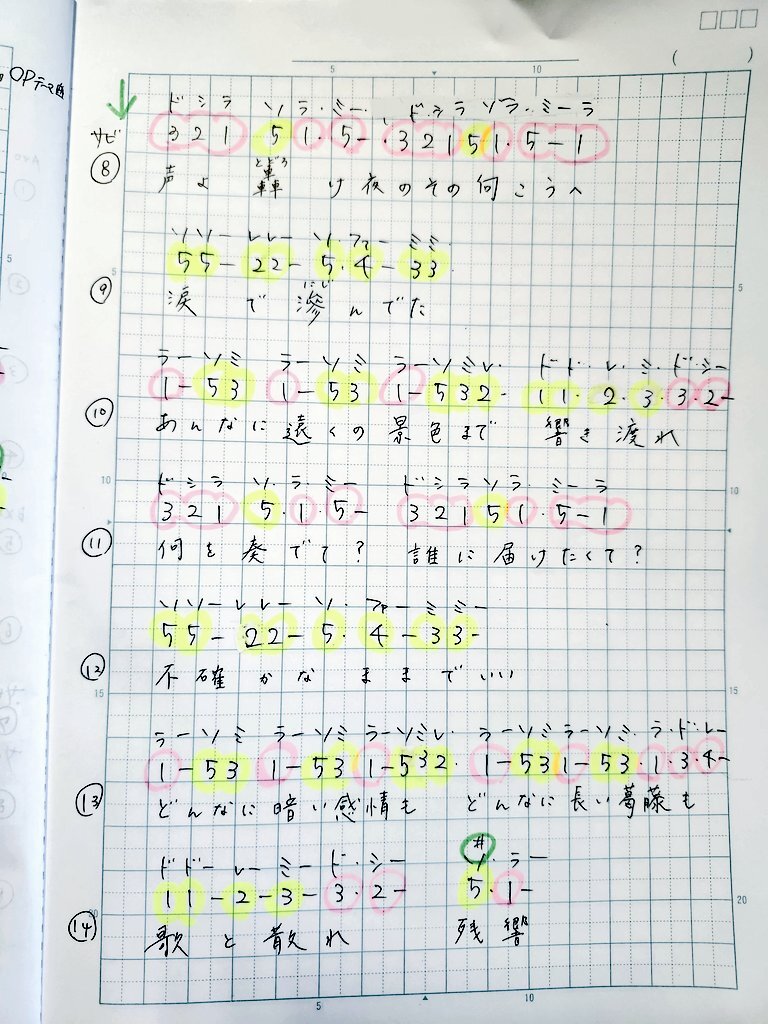 OPテーマ曲
5 10
( )
ド シ ラ ソ ラ・ミー・ ド・シ ラ ソ ラ・ミ ー ラ
サビ 3 2 1 5 1・5 - 3 2 1 5 1・5 - 1
⑧ 声よ 轟け夜のその何こうへ
とどろ
ソソー レレー ソ・ファー ミミ
5 5 - 2 2 - 5・4 - 3 3
5 5
⑨ 涙で滲んでた
にじ
ラーソミ ラーソミ ラーソミレ・ ドド・レ・ミ・ドシー
1 - 5 3 1 - 5 3 1 - 5 3 2・ 1 1・2・3・3・2 -
⑩ あんなに遠くの景色まで 響き渡れ
10 10
ドシラ ソ・ラ・ミー ドシラ ソ ラ・ミーラ
3 2 1 5・1・5 - 3 2 1 5 1・5 - 1
⑪ 何を奏でて? 誰に届けたくて?
ソソー レレー ソ・ファーミミー
5 5 - 2 2 - 5・4 - 3 3 -
⑫ 不確かなままでいい
15 15
ラーソミ ラーソミ ラーソミレ・ ラーソミラーソミ・ラ・ド・レー
1 - 5 3 1 - 5 3 1 - 5 3 2・ 1 - 5 3 1 - 5 3・1・3・4 -
⑬ どんなに暗い感情も どんなに長い葛藤も
#
ドドーレーミード・シー ソ・ラー
1 1 - 2 - 3 - 3・2 - 5・1 -
20 20
⑭ 歌と散れ 残響
5 10